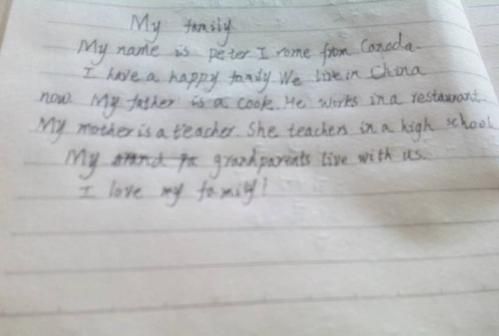 My family
My name is peter I rome from Canada.
I have a happy famdy We live in China
now. My father is a cook. He works in a restaurant.
My mother is a teacher. She teachers in a high school
My grandparents live with us.
I love my family!